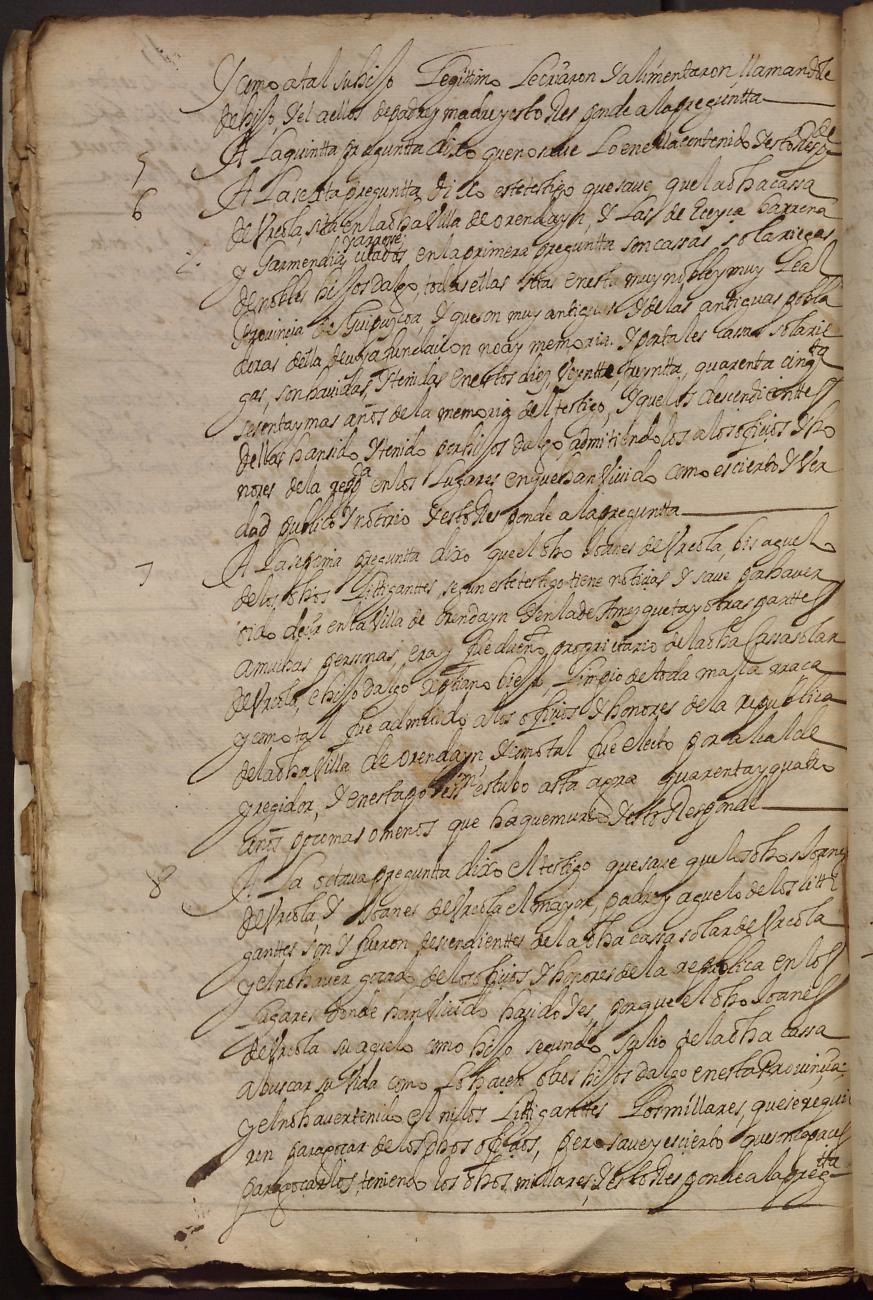 Y como a tal su hijo Legitimo Le criaron Y alimentaron, llamandole
de hijo, Y el a ellos de padre y madre y esto Responde a la preguntta
5 A La quintta pregunta dixo que no save Lo en ella contenido Y esto Respde
6 A La sexta preguntta, dixo este testigo que save que la dha cassa
de Vrcola, sita en la dha Villa de orendayn, Y Las de Eceyça barrena
yarrove,
y Garmendia citados en la primera preguntta son cassas solariegas
de nobles hijos dalgo, todas ellas sitas en esta muy noble y muy Leal
Provincia de Guipuzcoa, Y que son muy antiguas Y de las antiguas pobla
doras della de cuya fundacion no ay memoria. Y por tales casas solarie
gas, son havidas, Y tenidas en estos diez, Veyntte, treyntta, quarenta cinqta
sesenta y mas años de la memoria del testigo, Y que los descendienttes
dellas han sido Y tenido por hijos dalgo admitiendolos a los ofiçios Y ho
nores de la repcа en los Lugares en que han Vivido como es cierto Y Ver
dad publico Y notorio Y esto Responde a la preguntta
7 A La septima pregunta dixo que el dho Joanes de Vrcola, bisaguelo
de los dhos Littiganttes, segun este testigo tiene noticias Y save por haver
oido decir en la Villa de orendayn Y en la de Amezqueta y otras parttes
a muchas personas, era y fue dueño, proprietario de la dha Cassa solar
de Vrcola, e hijo dalgo xptiano biejo, Limpio de toda mala rraca
y como tal fue admitido a los ofiçios Y honores de la republica
de la dha Villa de orendayn, Y como tal fue electo por alcalde
y regidor, Y en estado estubo asta aora quarenta y quatro
años poco mas o menos que ha que murio Y esto Responde
8 A La octava preguntta dixo el testigo que save que los dhos Joanes
de Vrcola, Y Joanes de Vrcola el mayor, padre y aguelo de los litti
ganttes son Y fueron descendienttes de la dha cassa solar de Vrcola
y el no haver gozado de los ofiçios Y honores de la republica en los
Lugares donde han Vivido ha sido Y es, porque el dho Joanes
de Vrcola su aguelo como hijo segundo salio de la dha cassa
a buscar su Vida como Lo hacen otros hijos dalgo en esta Provincia,
y el no haver tenido el ni los Littiganttes Los millares, que se requie
ren para goçar de los dhos ofiçios, pero save y es cierto que son capaces
para goçarlos, teniendo los dhos millares, Y esto Responde a la pregtta